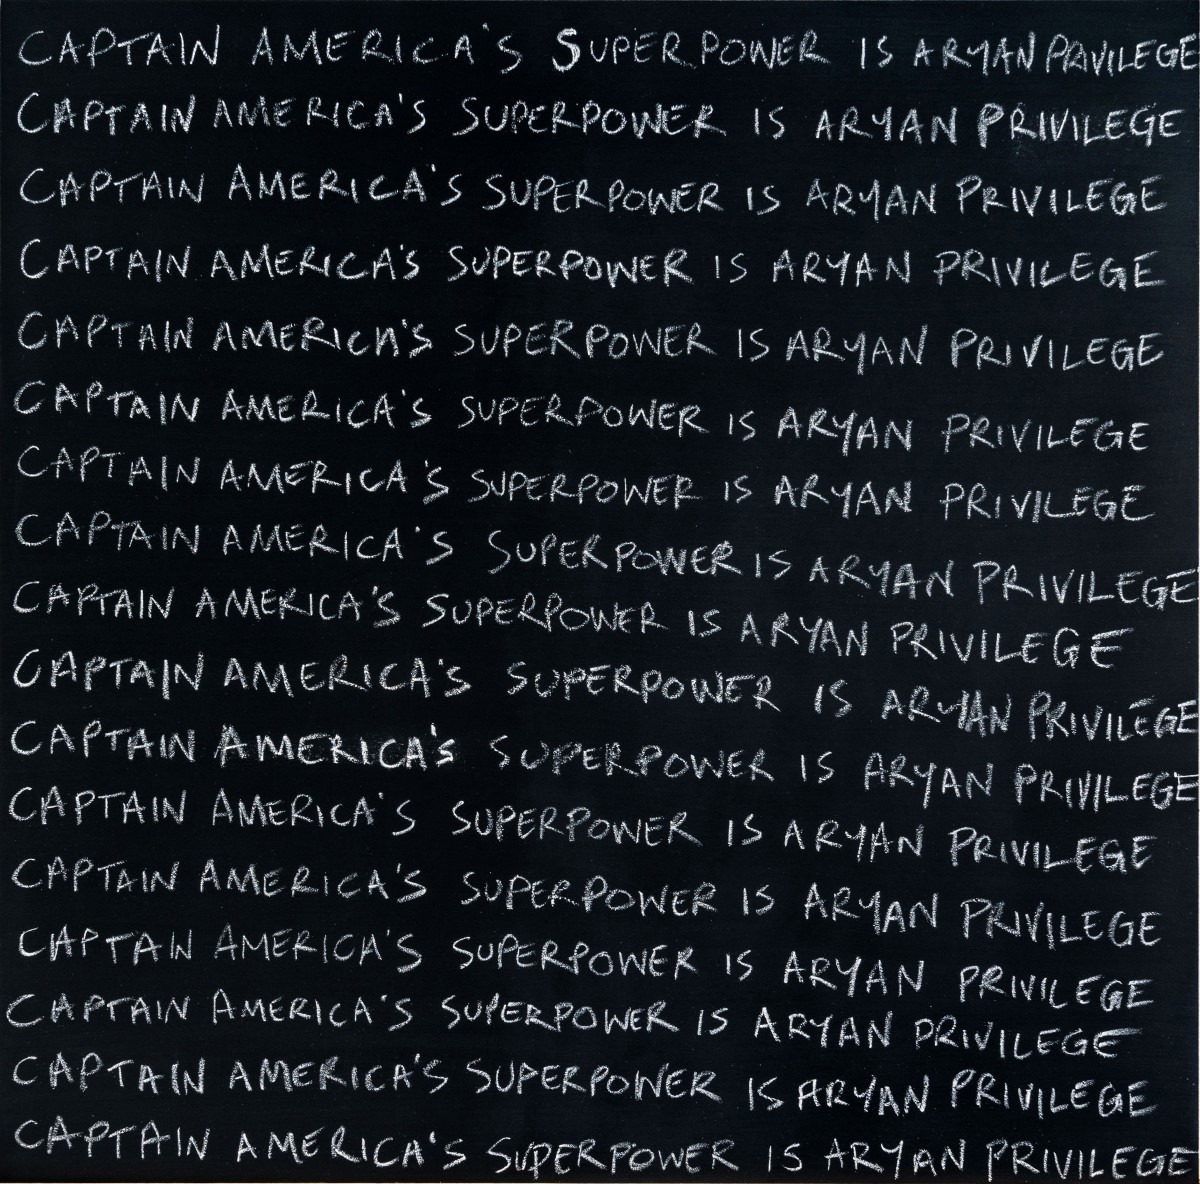 CAPTAIN AMERICA'S SUPERPOWER IS ARYAN PRIVILEGE
CAPTAIN AMERICA'S SUPERPOWER IS ARYAN PRIVILEGE
CAPTAIN AMERICA'S SUPERPOWER IS ARYAN PRIVILEGE
CAPTAIN AMERICA'S SUPERPOWER IS ARYAN PRIVILEGE
CAPTAIN AMERICA'S SUPERPOWER IS ARYAN PRIVILEGE
CAPTAIN AMERICA'S SUPERPOWER IS ARYAN PRIVILEGE
CAPTAIN AMERICA'S SUPERPOWER IS ARYAN PRIVILEGE
CAPTAIN AMERICA'S SUPERPOWER IS ARYAN PRIVILEGE
CAPTAIN AMERICA'S SUPERPOWER IS ARYAN PRIVILEGE
CAPTAIN AMERICA'S SUPERPOWER IS ARYAN PRIVILEGE
CAPTAIN AMERICA'S SUPERPOWER IS ARYAN PRIVILEGE
CAPTAIN AMERICA'S SUPERPOWER IS ARYAN PRIVILEGE
CAPTAIN AMERICA'S SUPERPOWER IS ARYAN PRIVILEGE
CAPTAIN AMERICA'S SUPERPOWER IS ARYAN PRIVILEGE
CAPTAIN AMERICA'S SUPERPOWER IS ARYAN PRIVILEGE
CAPTAIN AMERICA'S SUPERPOWER IS ARYAN PRIVILEGE
CAPTAIN AMERICA'S SUPERPOWER IS ARYAN PRIVILEGE